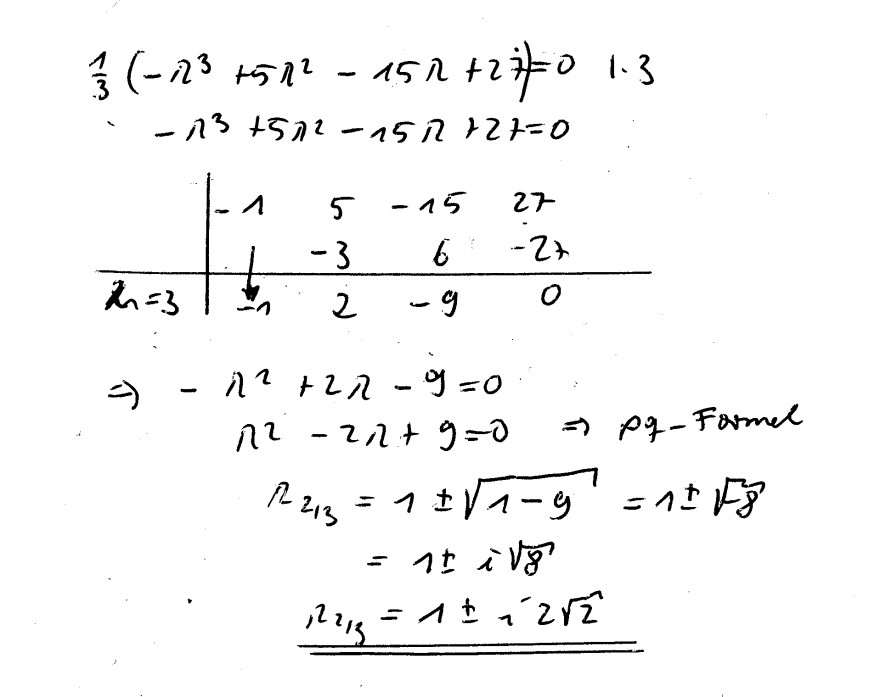 1/3 (-λ³ +5λ² - 15λ +27)=0 |·3
-λ³ +5λ² -15λ +27=0
-1 5 -15 27
-3 6 -27
λ₁=3 -1 2 -9 0
⇒ -λ² +2λ -9=0
λ² -2λ+9=0 ⇒ pq-Formel
λ₂,₃ = 1 ± √(1-9) = 1 ± √-8
= 1 ± i√8
λ₂,₃ = 1 ± i 2√2